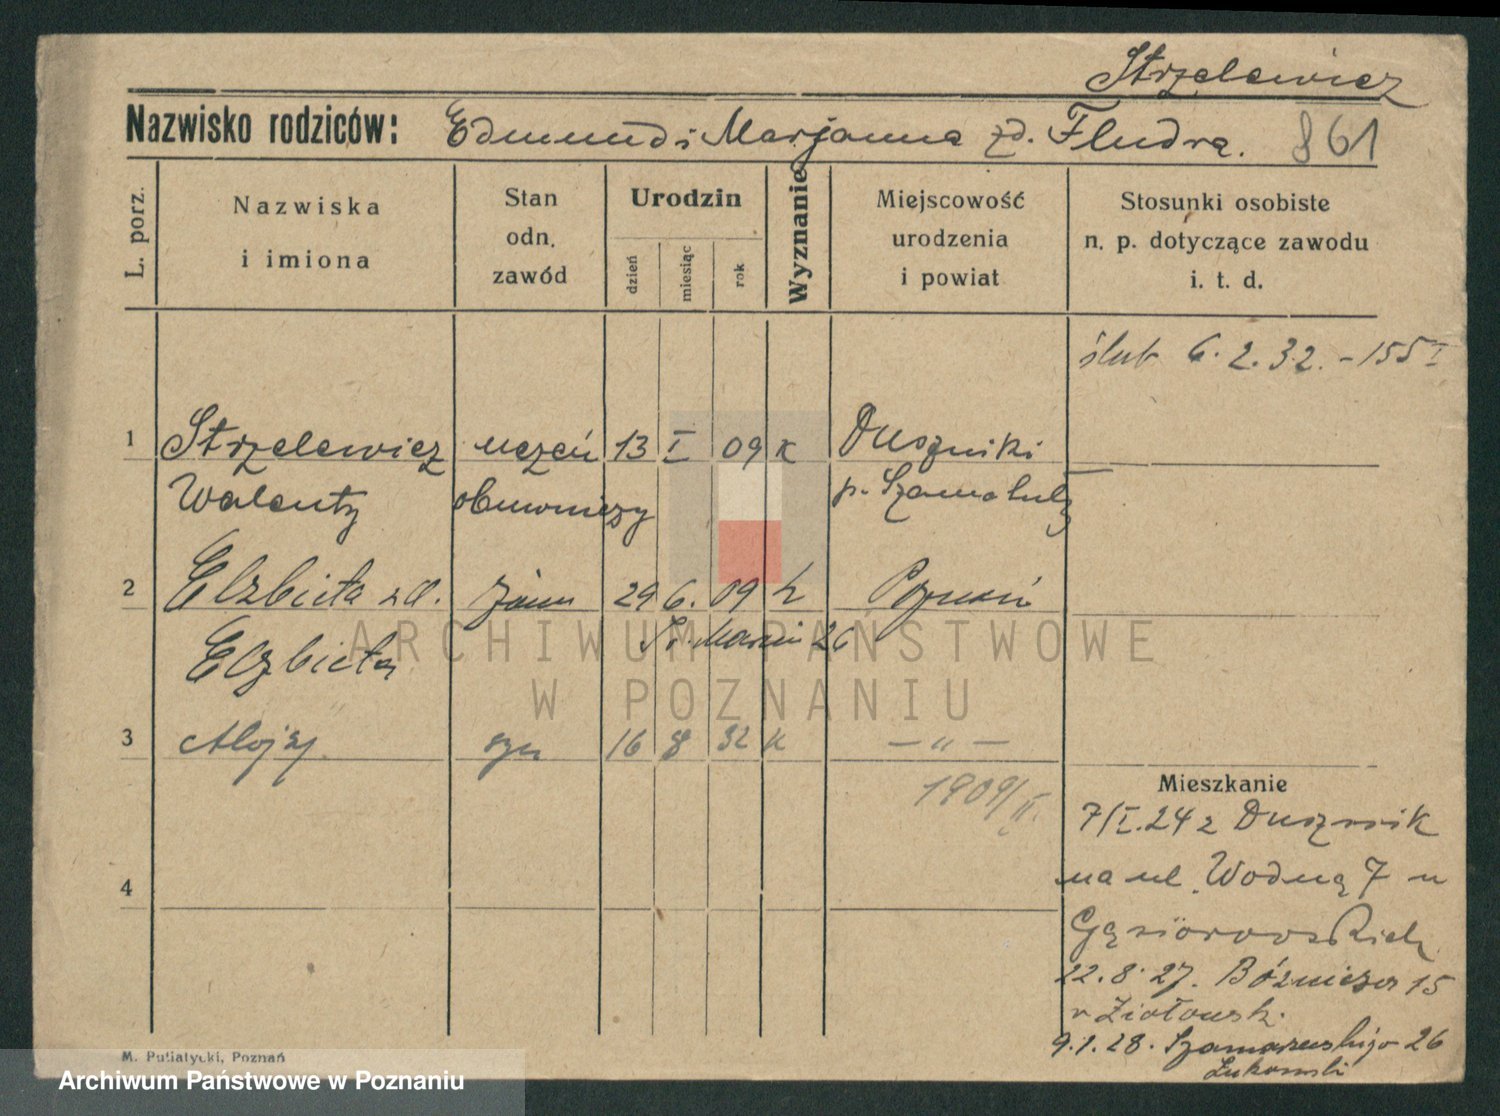 Strzelewicz
Nazwisko rodziców: Edmund i Marjanna zd. Fludra. 861
L. porz.
Nazwiska
i imiona
Stan
odn.
zawód
Urodzin
dzień
miesiąc
rok
Wyznanie
Miejscowość
urodzenia
i powiat
Stosunki osobiste
n. p. dotyczące zawodu
i. t. d.
ślub 6.2.32. - 155 I
1 Strzelewicz uczeń 13 I 09 K Duszniki
Walenty obuwniczy p. Szamotuły
2 Elżbieta zd. żona 29 6. 09 k Poznań
Św. Marcin 26
Elżbieta
3 Alojzy syn 16 8 32 k — " —
1909/II.
4
Mieszkanie
7/I.24 z Dusznik
na ul. Wodną 7 u
Gąsiorowskich
22.8.27. Bóżnicza 15
u Ziołowsk.
9.1.28. Szamarzewskiego 26
Żukowski
M. Putiatycki, Poznań
ARCHIWUM PAŃSTWOWE
W POZNANIU
Archiwum Państwowe w Poznaniu